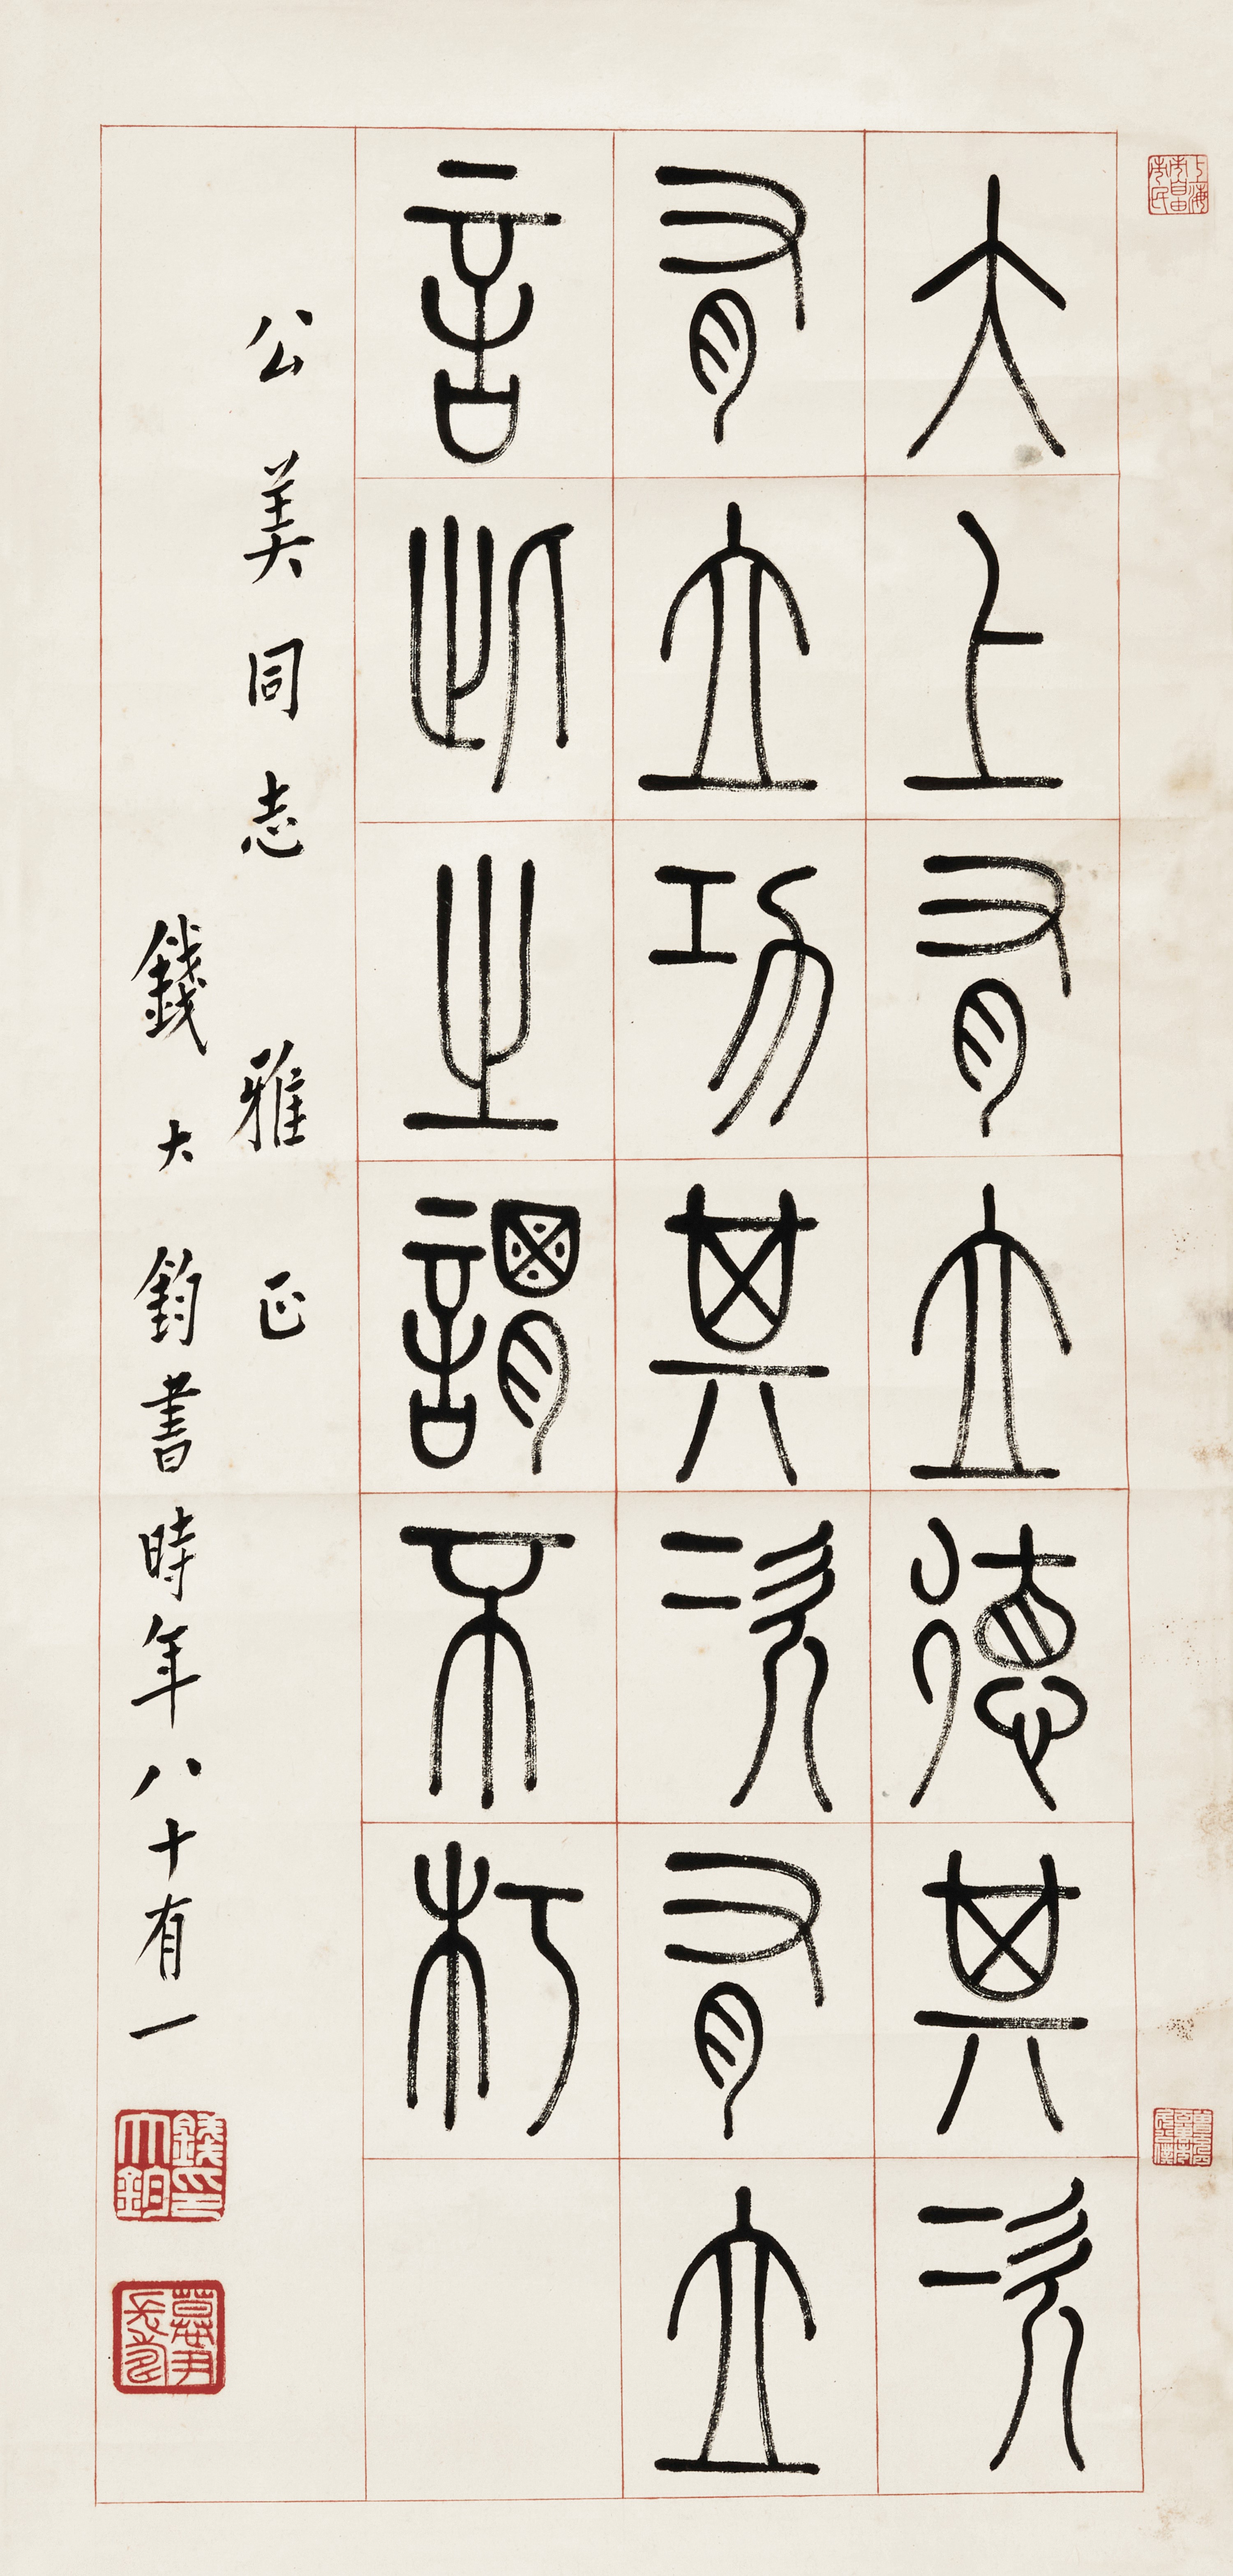 大上有立德其次
有立功其次有立
言此之謂不朽
公美同志雅正
錢大鈞書時年八十有一
錢大鈞印